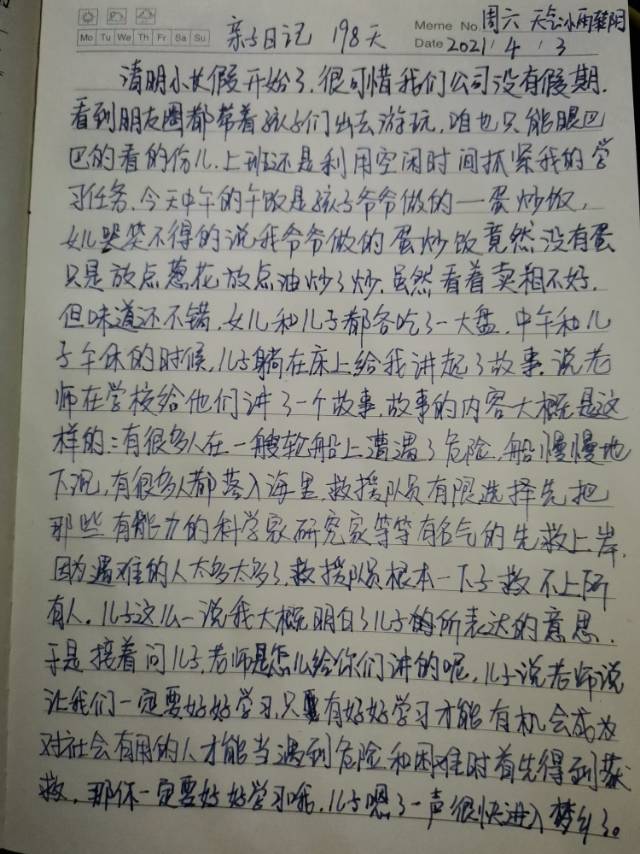 周六 天气小雨转阴
亲子日记 198天
Meme No.
Mo Tu We Th Fr Sa Su
Date 2021 / 4 / 3
清明小长假开始了,很可惜我们公司没有假期.
看到朋友圈都带着孩子们出去游玩,咱也只能眼巴
巴的看的份儿.上班还是利用空闲时间抓紧我的学
习任务.今天中午的午饭是孩子爷爷做的一蛋炒饭,
女儿哭笑不得的说我爷爷做的蛋炒饭竟然没有蛋
只是放点葱花放点油炒了炒.虽然看着卖相不好.
但味道还不错,女儿和儿子都各吃了一大盘.中午和儿
子午休的时候,儿子躺在床上给我讲起了故事.说老
师在学校给他们讲了一个故事.故事的内容大概是这
样的:有很多人在一艘轮船上遭遇了危险.船慢慢地
下沉,有很多人都落入海里.救援队员有限选择先把
那些有能力的科学家研究家等等有名气的先救上岸,
因为遇难的人太多太多了,救援队员根本一下子救不上所
有人.儿子这么一说我大概明白了儿子的所表达的意思.
于是接着问儿子,老师是怎么给你们讲的呢,儿子说老师说
让我们一定要好好学习,只要有好好学习才能有机会成为
对社会有用的人才能当遇到危险和困难时首先得到获
救,那你一定要好好学习哦,儿子嗯了一声很快进入梦乡了。